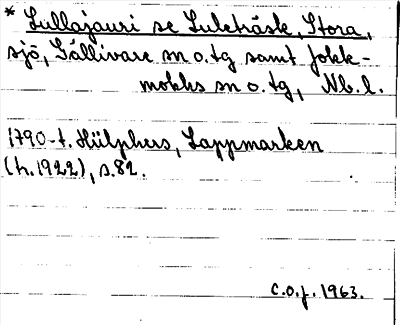 * Lullajauri se Luleträsk, Stora,
sjö, Gällivare sn o. tg samt Jokk-
mokks sn o. tg, Nb. l.
1790-t. Hülphers, Lappmarken
(tr. 1922), s. 82.
C.O.J. 1963.